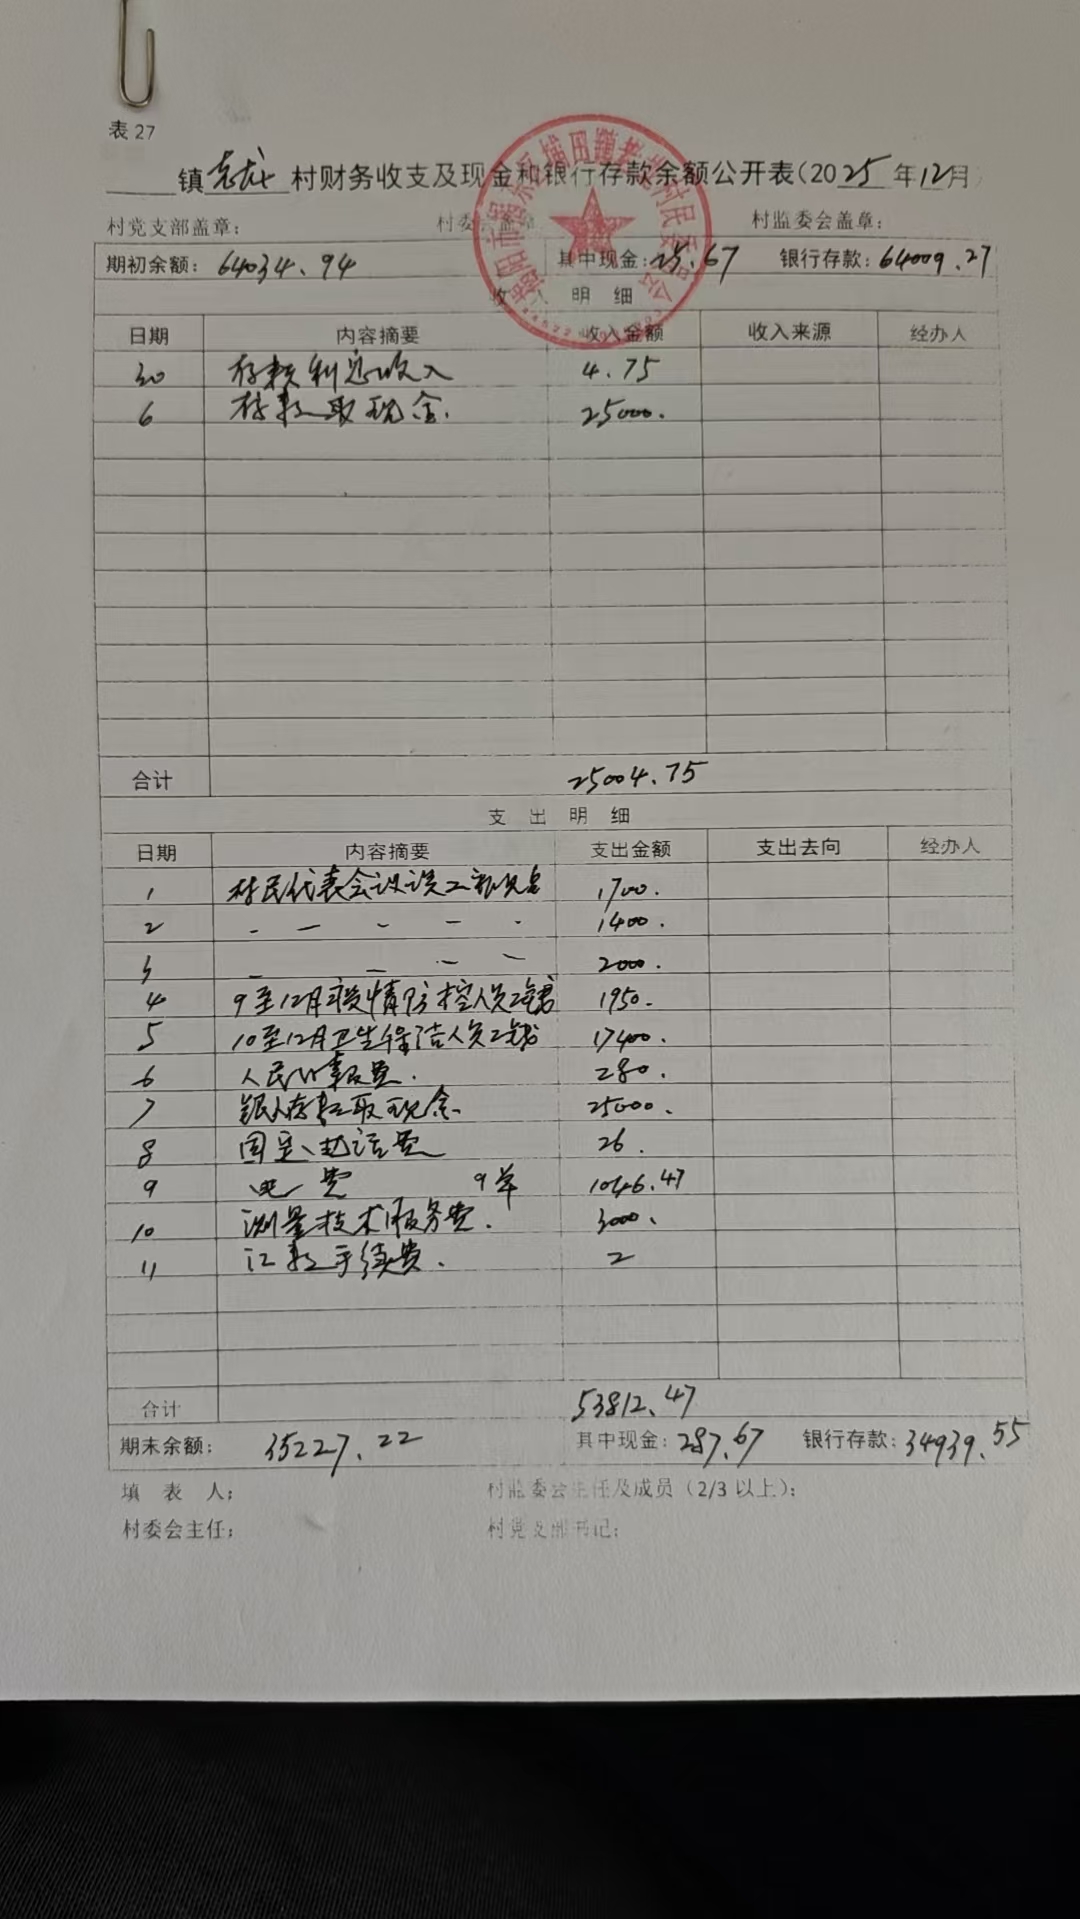 表 27
镇 村财务收支及现金和银行存款余额公开表(2025年12月)
村党支部盖章: 村委会盖章 村监委会盖章:
期初余额: 64034.94 其中现金: 25.67 银行存款: 64009.27
收入明细
日期 内容摘要 收入金额 收入来源 经办人
30 存款利息收入 4.75
6 存款取现金. 25000.
合计 25004.75
支出明细
日期 内容摘要 支出金额 支出去向 经办人
1 村民代表会议误工 1700.
2 - — - - - 1400.
3 - - - - 2000.
4 9至12月疫情防控人员 1950.
5 10至12月卫生保洁人员 17400.
6 人民日报费. 280.
7 银行存款取现金. 25000.
8 固定电话费 26.
9 电费 9单 1046.47
10 测量技术服务费. 3000.
11 汇款手续费. 2
合计 53812.47
期末余额: 35227.22 其中现金: 287.67 银行存款: 34939.55
填表人; 村监委会主任及成员(2/3以上);
村委会主任; 村党支部书记;